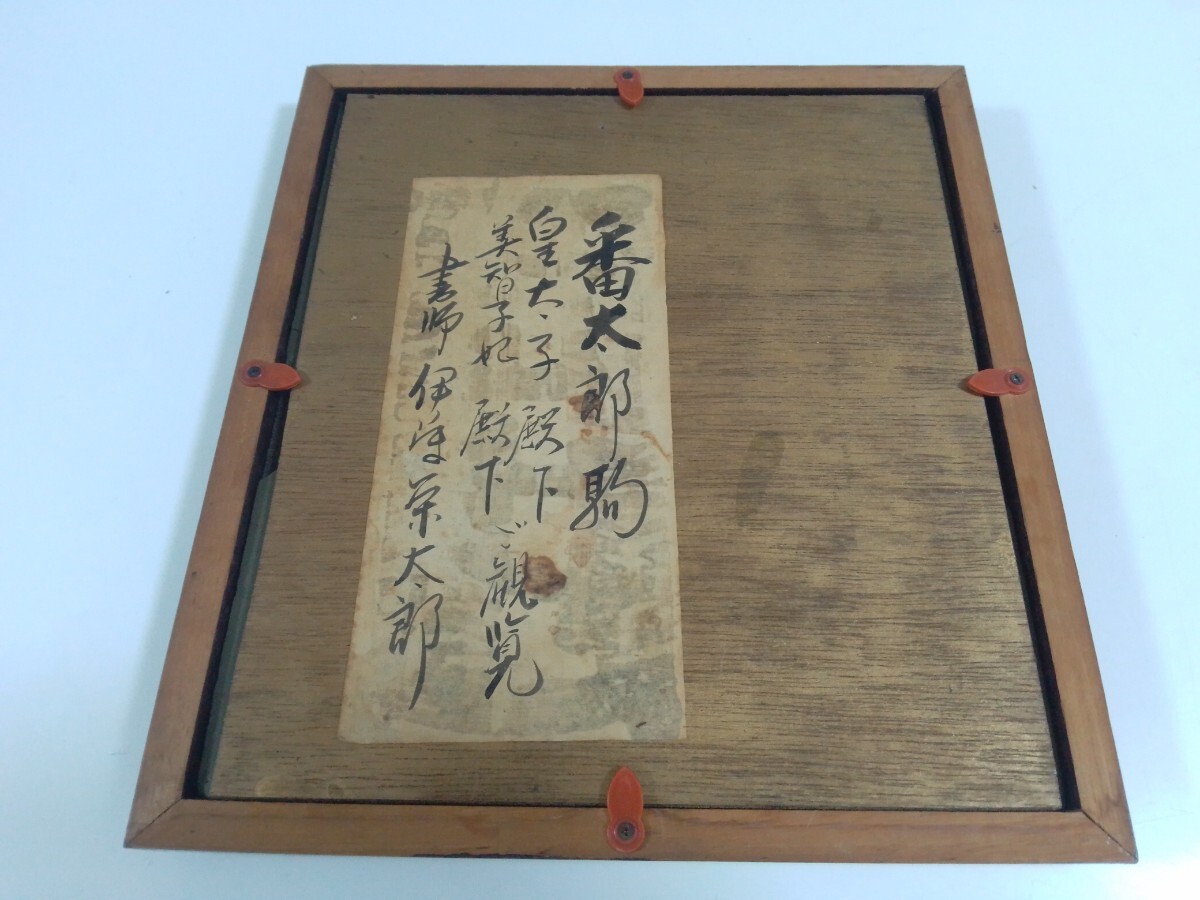 番太郎駒
皇太子殿下
美智子妃殿下ご観覧
書師 伊藤栄太郎